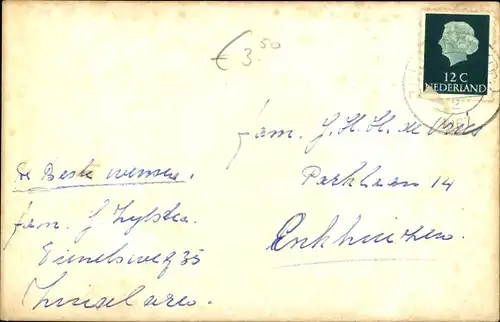 € 3.50
12 C
NEDERLAND
fam. J. H. H. de Vries
Parklaan 14
Enkhuizen.
De Beste wensen.
fam. J Zylstra.
35